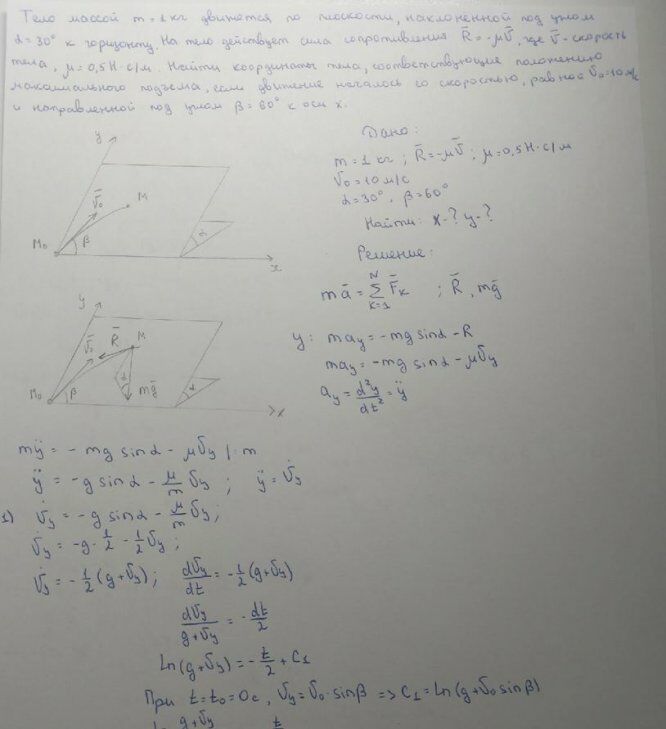 Тело массой m = 1 кг движется по плоскости, наклоненной под углом
α = 30° к горизонту. На тело действует сила сопротивления R̄ = -μv̄, где v̄ - скорость
тела, μ = 0,5 Н·с/м. Найти координаты тела, соответствующие положению
максимального подъема, если движение началось со скоростью, равной v̄₀=10 м/с
и направленной под углом β = 60° к оси x.
Дано:
m = 1 кг ; R̄ = -μv̄ ; μ = 0,5 Н·с/м
v₀ = 10 м/с
α = 30° , β = 60°
Найти: x-? y-?
Решение:
mā = Σ F̄ₖ ; R̄ , mḡ
N
k=1
y: maᵧ = -mg sinα - R
maᵧ = -mg sinα - μvᵧ
aᵧ = d²y/dt² = ÿ
y
v̄₀
M
M₀
β
α
x
y
v̄₀
R̄
M
α
mḡ
M₀
β
α
x
mÿ = - mg sinα - μvᵧ |: m
ÿ = -g sinα - μ/m vᵧ ; ÿ = v̇ᵧ
1) v̇ᵧ = -g sinα - μ/m vᵧ ;
v̇ᵧ = -g · 1/2 - 1/2 vᵧ ;
v̇ᵧ = - 1/2 (g+vᵧ) ; dvᵧ/dt = - 1/2 (g+vᵧ)
dvᵧ/(g+vᵧ) = - dt/2
Ln(g+vᵧ) = - t/2 + C₁
При t = t₀ = 0с, vᵧ = v₀·sinβ => C₁ = ln(g+v₀sinβ)
g+vᵧ t